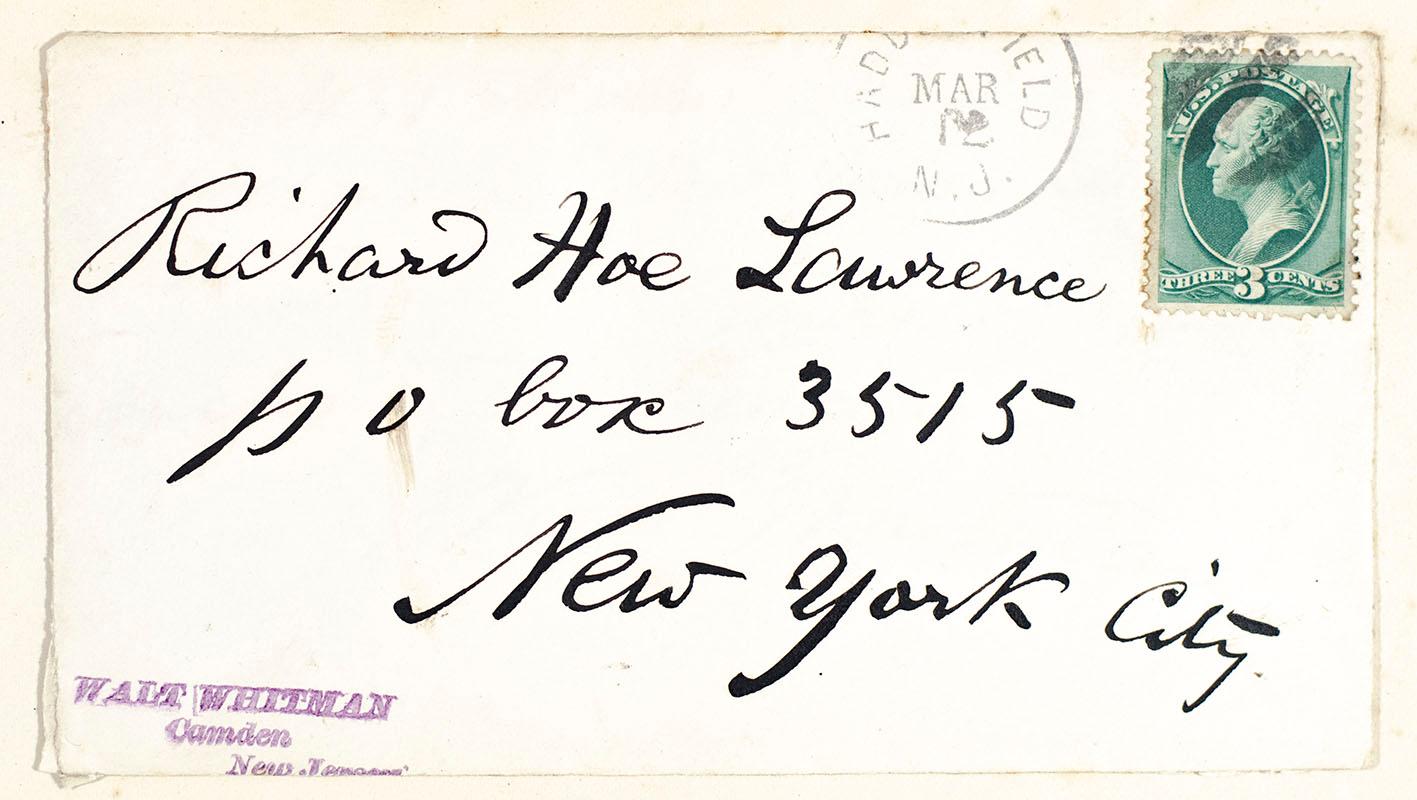 MAR
12
N.J.
U.S. POSTAGE
THREE 3 CENTS
Richard Hoe Lawrence
p o box 3515
New York City
WALT WHITMAN
Camden
New Jersey